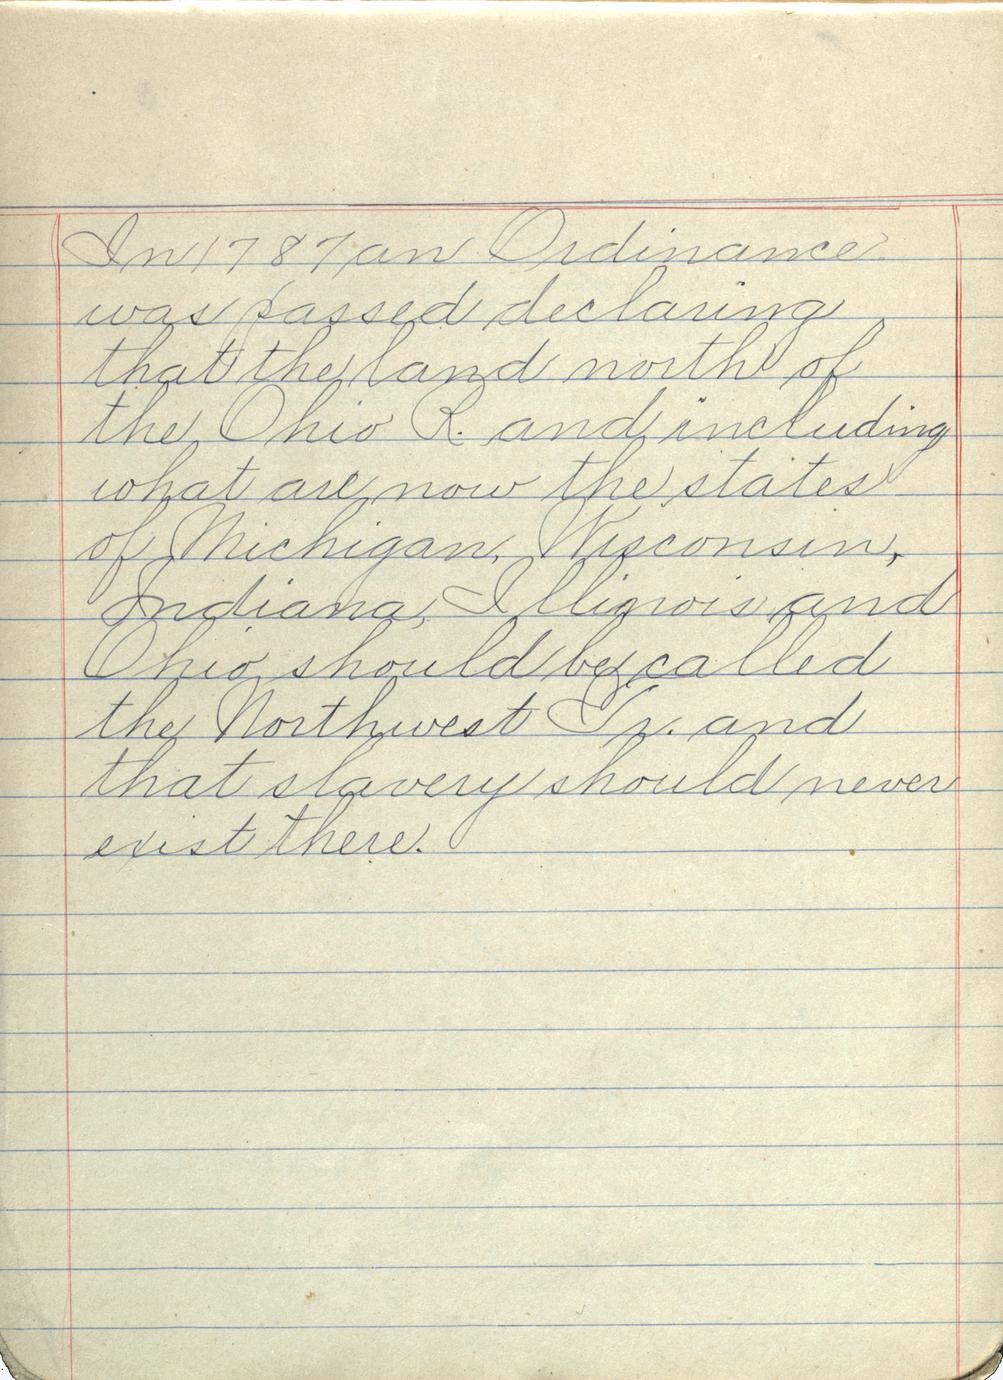 In 1787 an Ordinance
was passed declaring
that the land north of
the Ohio R. and including
what are now the states
of Michigan, Wisconsin,
Indiana, Illinois and
Ohio should be called
the Northwest Tr. and
that slavery should never
exist there.